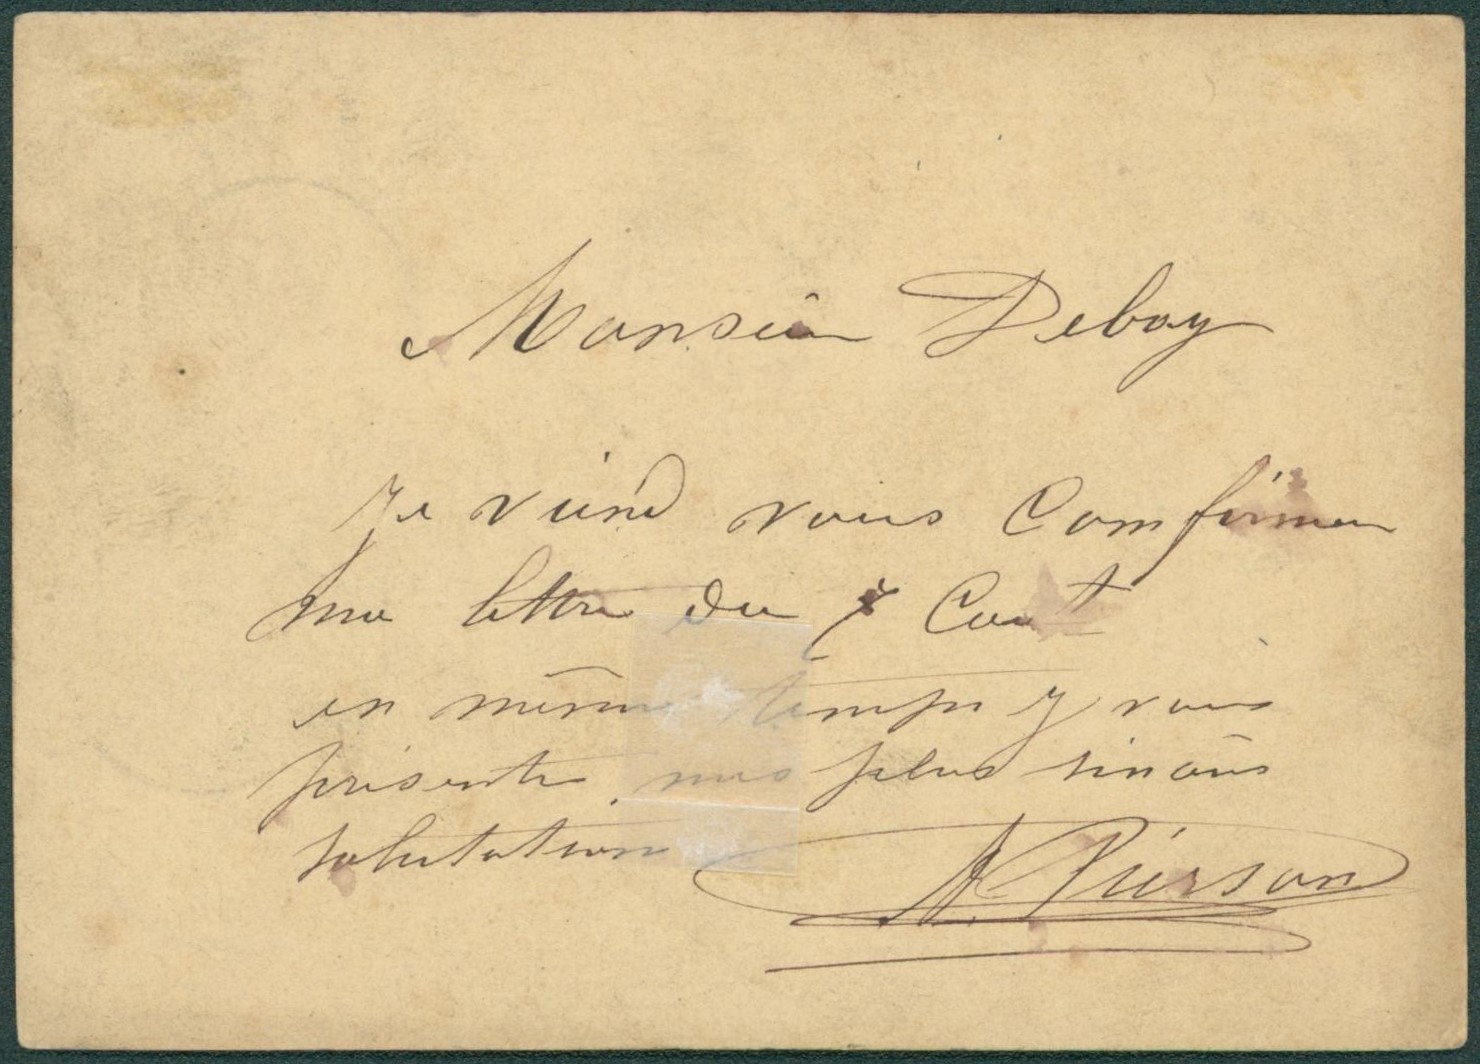 Monsieur Deboy
Je viend vous Comfirmer
ma lettre du 7 Cout
en même temps je vous
présente mes plus sincères
salutation A. Pierson